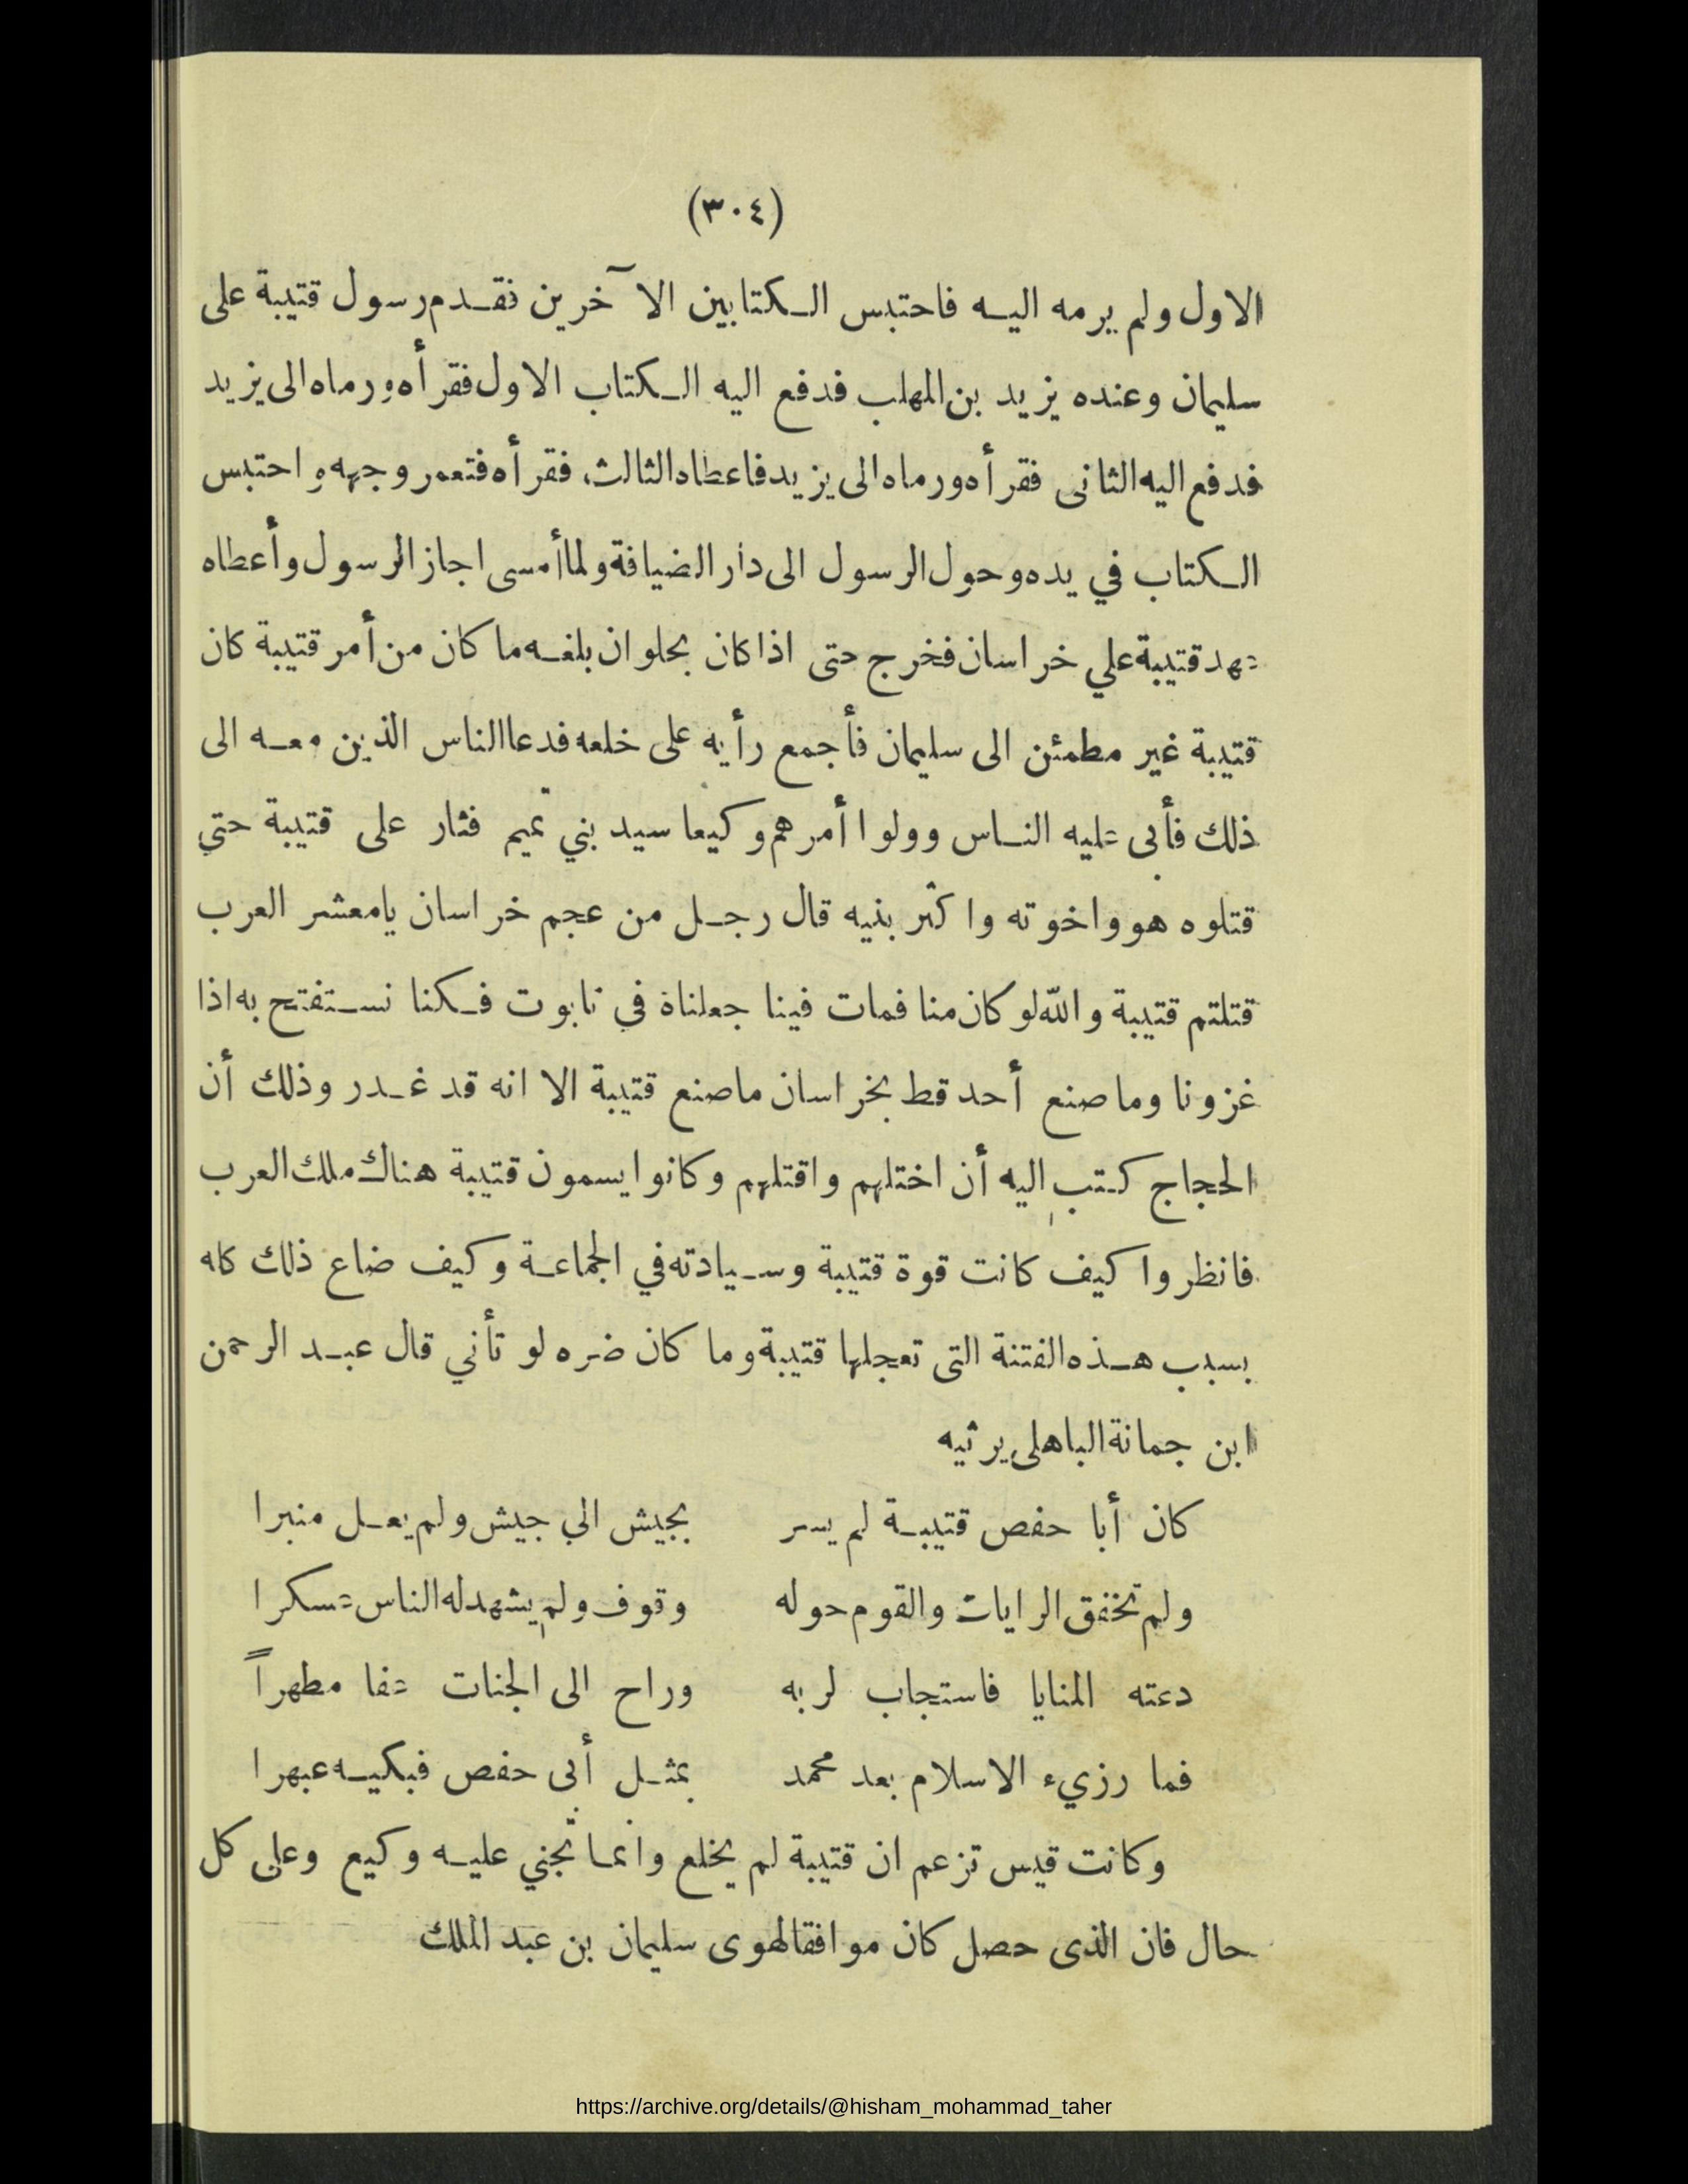 (٣٠٤)
الاول ولم يرمه اليه فاحتبس الكتابين الآخرين فقدم رسول قتيبة على
سليمان وعنده يزيد بن المهلب فدفع اليه الكتاب الاول فقرأه ورماه الى يزيد
فدفع اليه الثانى فقرأه ورماه الى يزيد فاعطاه الثالث، فقرأه فتعمر وجهه واحتبس
الكتاب في يده وحول الرسول الى دار الضيافة ولما أمسى اجاز الرسول وأعطاه
عهد قتيبة علي خراسان فخرج حتى اذا كان بحلوان بلغه ما كان من أمر قتيبة كان
قتيبة غير مطمئن الى سليمان فأجمع رأيه على خلعه فدعا الناس الذين معه الى
ذلك فأبى عليه الناس وولوا أمرهم وكيعا سيد بني تميم فثار على قتيبة حتي
قتلوه هو واخوته واكثر بنيه قال رجل من عجم خراسان يامعشر العرب
قتلتم قتيبة والله لو كان منا فمات فينا جعلناه في تابوت فكنا نستفتح به اذا
غزونا وما صنع أحد قط بخراسان ماصنع قتيبة الا انه قد غدر وذلك أن
الحجاج كتب اليه أن اختلهم واقتلهم وكانوا يسمون قتيبة هناك ملك العرب
فانظروا كيف كانت قوة قتيبة وسيادته في الجماعة وكيف ضاع ذلك كله
بسبب هذه الفتنة التى تعجلها قتيبة وما كان ضره لو تأني قال عبد الرحمن
ابن جمانة الباهلى يرثيه
كان أبا حفص قتيبة لم يسر بجيش الي جيش ولم يعل منبرا
ولم تخفق الرايات والقوم حوله وقوف ولم يشهد له الناس عسكرا
دعته المنايا فاستجاب لربه وراح الى الجنات عفا مطهراً
فما رزيء الاسلام بعد محمد بمثل أبى حفص فبكيه عبهرا
وكانت قيس تزعم ان قتيبة لم يخلع وانما تجني عليه وكيع وعلى كل
حال فان الذى حصل كان موافقا لهوى سليمان بن عبد الملك
https://archive.org/details/@hisham_mohammad_taher